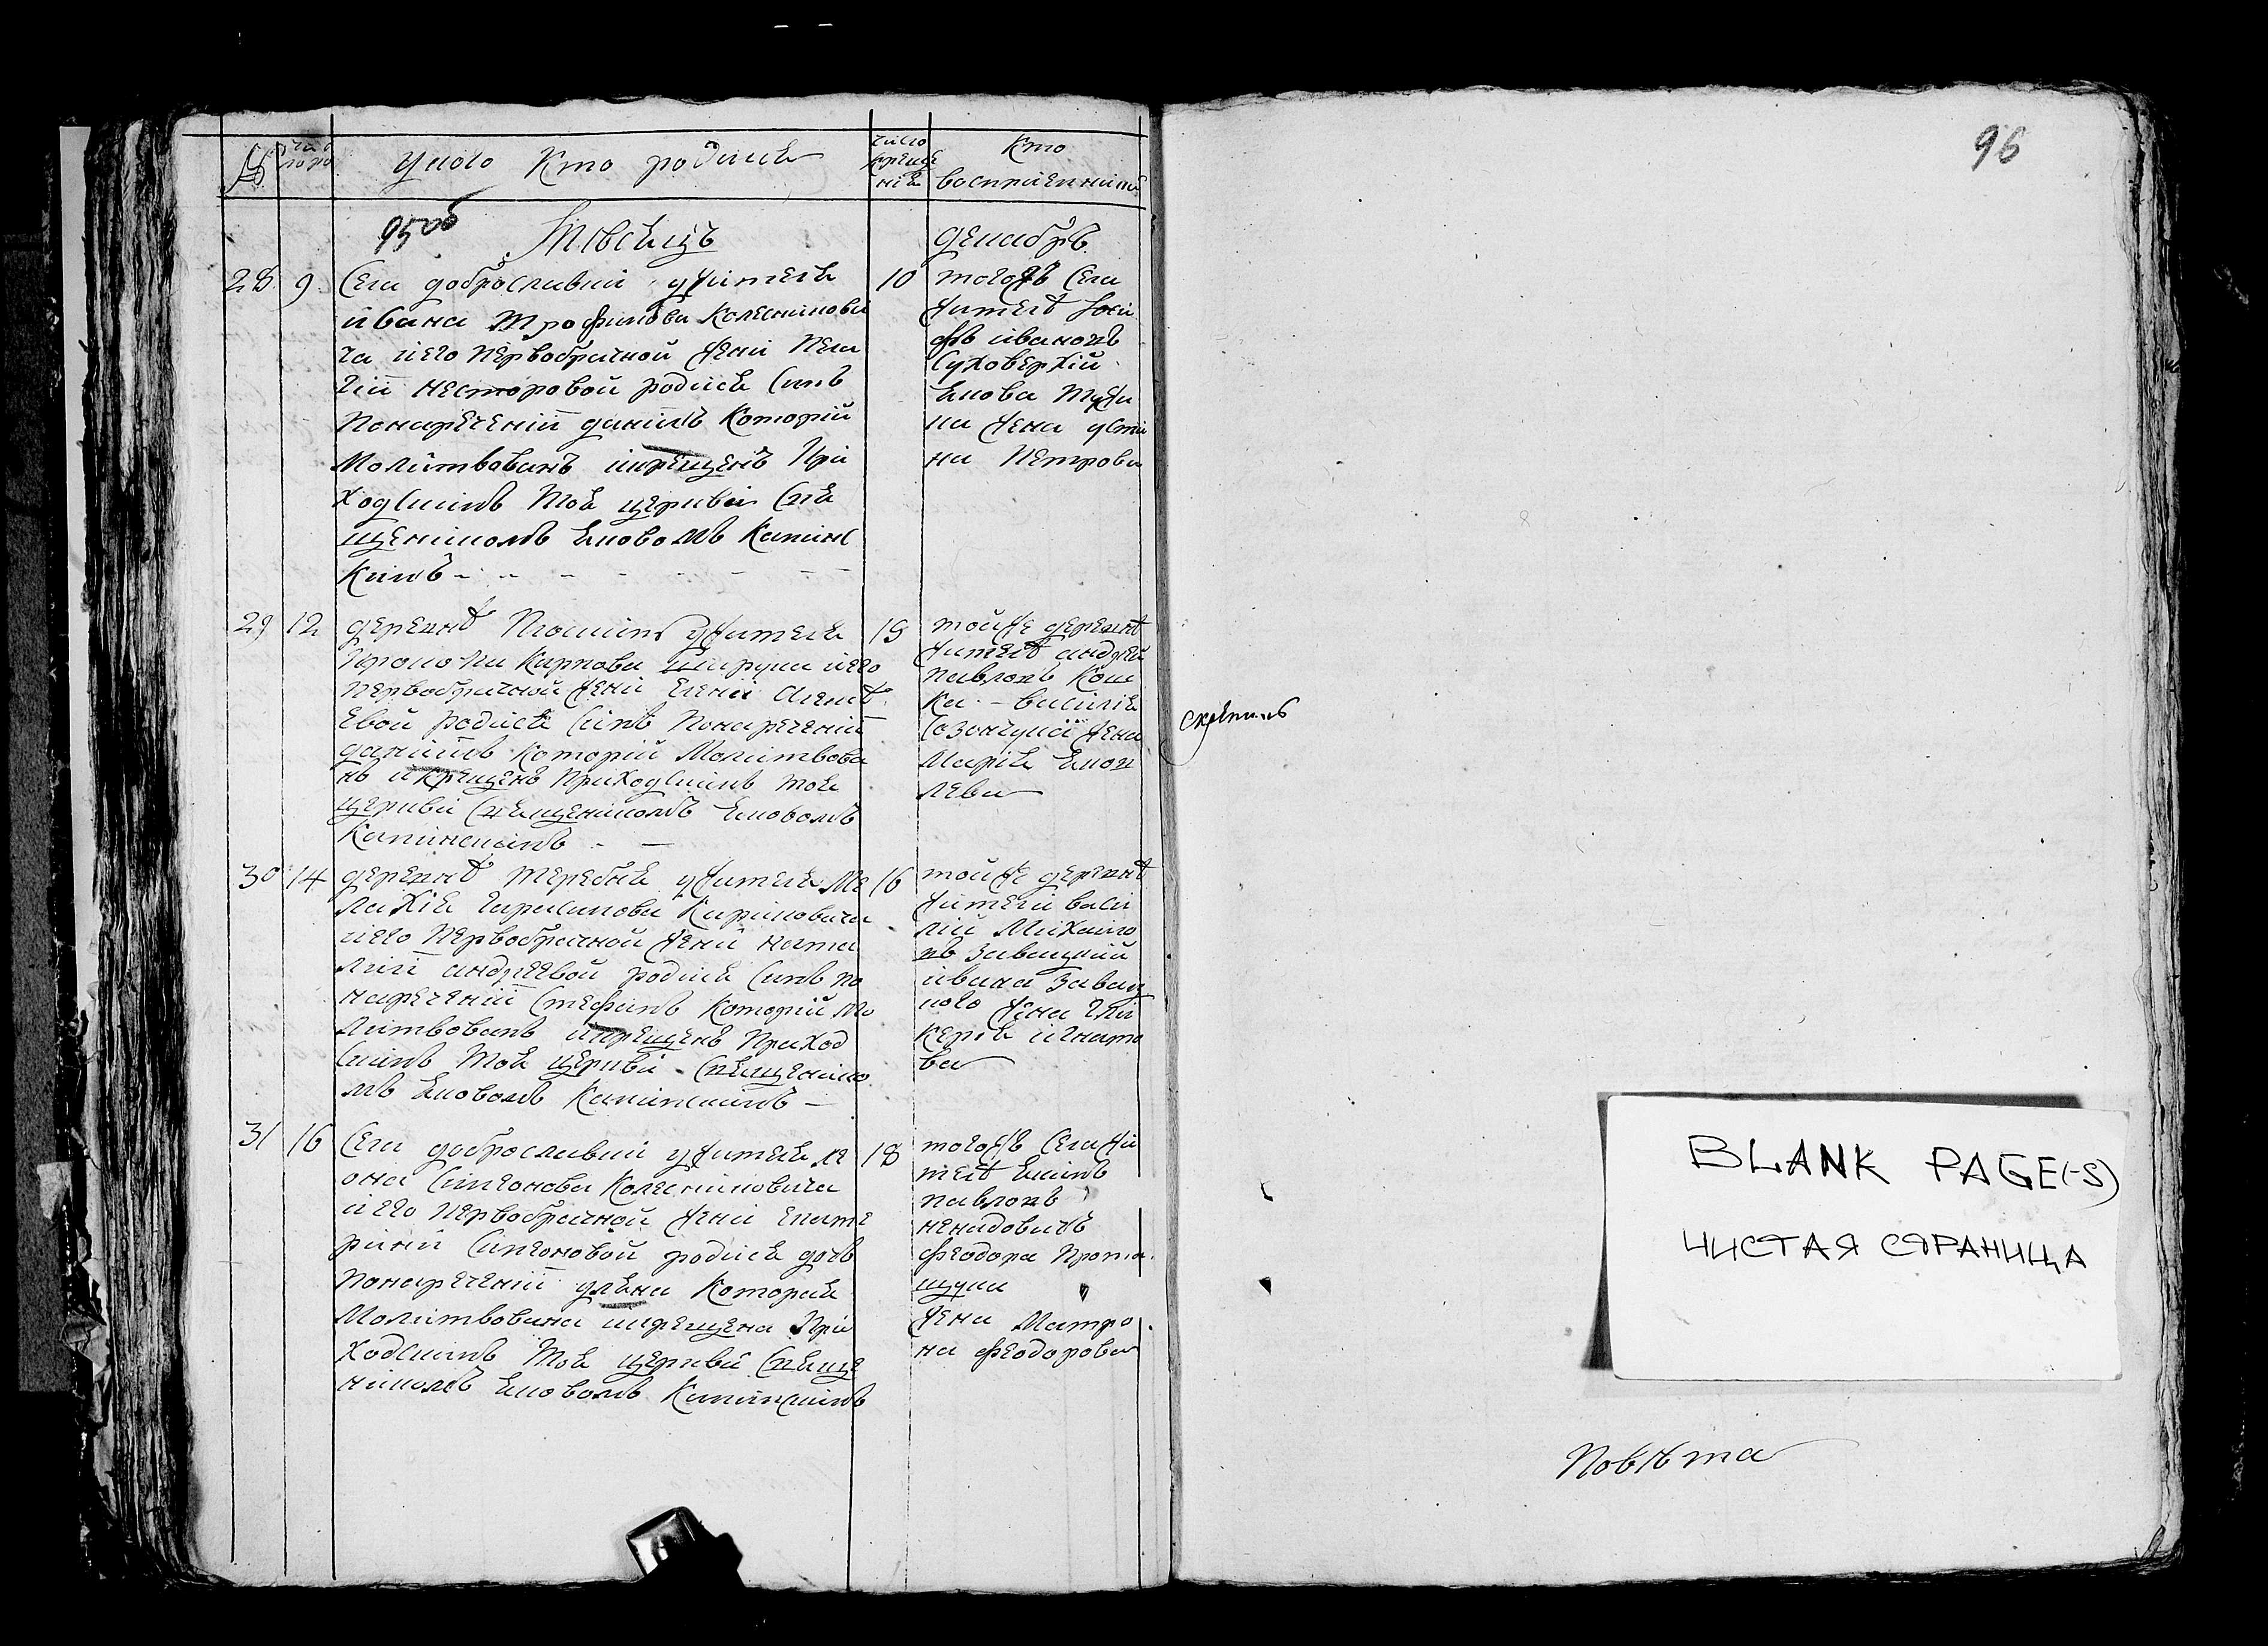 № число ро
у кого кто родился
число креще
ніѧ
Кто
воспріемники
95об Мѣсецъ
декабрь
28 9 Села доброславки у жителѧ
ивана Трофимова Колесникови
ча иего первобрачной жени Пела
гіи несторовой родисѧ синъ
Понареченіи данилъ Которій
Молитвованъ икрещенъ При
ходскимъ Тоѧ церкви свѧ
щеникомъ Ѧковомъ Капинс
кимъ
10 тогожъ Села
житель Іоси
фъ ивановъ
Суховерхій
Ѧкова
на жена усти
на Петрова
29 12 деревнѣ у жителѧ
Прокопа Карпова иего
первобрачной жени Елени Алекс
евой родисѧ синъ Понареченіи
данилъ Которій Молитвова
нъ и Крещенъ Приходскимъ тоѧ
церкви Свѧщеникомъ Ѧковомъ
Капинскимъ
15 тойже деревнѣ
житель андрей
павловъ Кош
ка василіѧ
жена
Маріѧ Ѧков
лева
30 14 деревнѣ теребнѧ у жителѧ Ма
лахіѧ герасимова Кариновича
иего Первобрачной жени ната
ліи андреевой родисѧ синъ по
нареченіи Стефанъ Которій Мо
литвованъ икрещенъ Приход
скимъ Тоѧ церкви Свѧщенико
мъ Ѧковомъ Капинскимъ
16 тойже деревнѣ
жители васи
лій Михайло
въ Завацкий
ивана Завац
кого жена гли
керіѧ игнато
ва
31 16 Села доброславки у жителѧ ле
она Симеонова Колесниковича
иего первобрачной жени екате
рини Симеоновой родисѧ дочь
Понареченіи улѧна Котораѧ
Молитвована икрещена При
ходскимъ Тоѧ церкви Свѧще
никомъ Ѧковомъ Капинскимъ
18 тогожъ Села жи
тель Ѧкимъ
павловъ
ненадовичъ
феодора
жена Матро
на феодорова
96
скрѣпилъ
BLANK PAGE(-S)
ЧИСТАЯ СТРАНИЦА
Повѣта